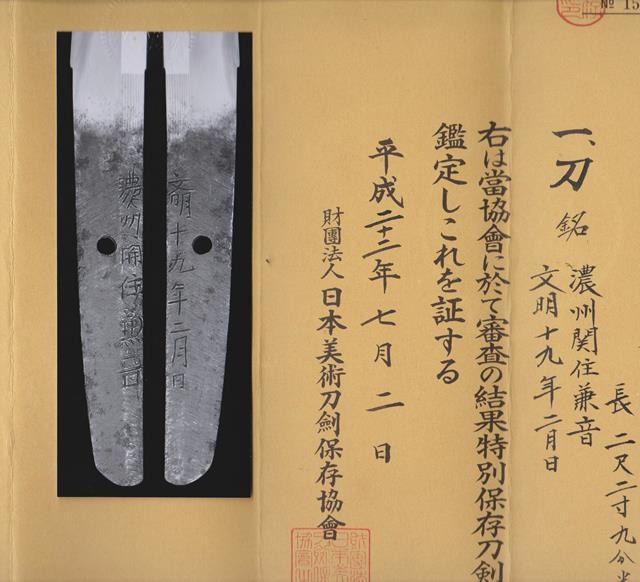 № 15
一、刀 銘
濃州関住兼音
文明十九年二月日
長 二尺二寸九分半
右は當協會に於て審査の結果特別保存刀剣
鑑定しこれを証する
平成二十二年七月二日
財團法人日本美術刀劍保存協會
文明十九年二月日
濃州関住兼音